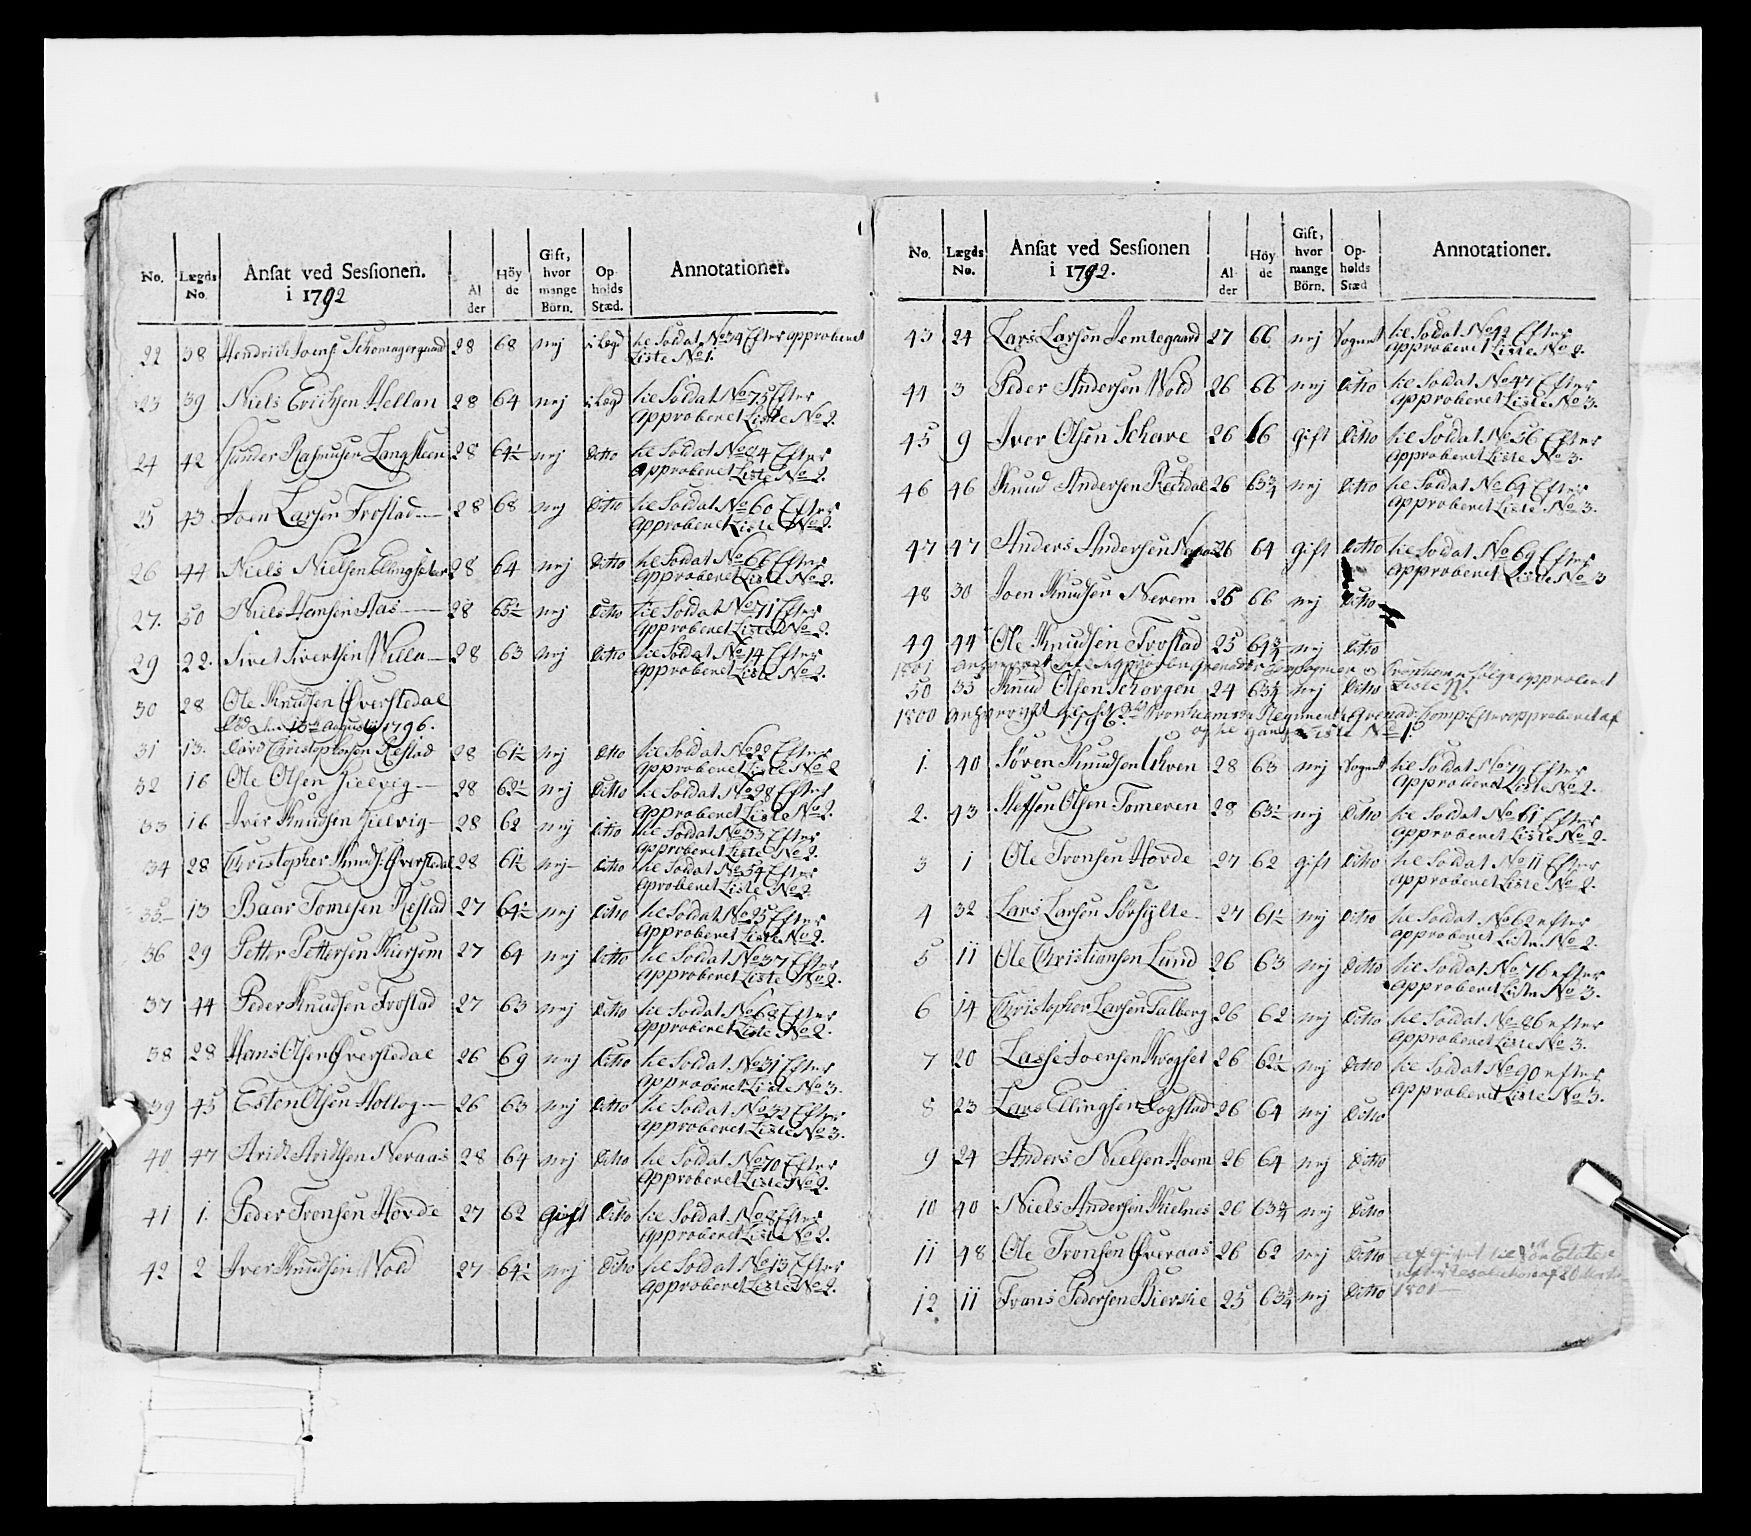 No. Lægds No. Ansat ved Sessionen. i 1792 Al der Höy de Gift, hvor mange Börn. Op holds Stæd. Annotationer.
22 38 Hendrich Joens: Schomagergaard 28 68 nej i Lægd til Soldat No 34 Efter approberet
Liste No 1.
23 39 Niels Erichsen Hellan 28 64 nej i Lægd til Soldat No 75 Efter
approberet Liste No 2.
24 42 Gunder Rasmusen Langsteen 28 64½ nej Ditto til Soldat No 84 Efter
approberet Liste No 2.
25 43 Joen Larsen Frostad 28 68 nej Ditto til Soldat No 60 Efter
approberet Liste No 2.
26 44 Niels Nielsen Ellingsæter 28 64 nej Ditto til Soldat No 66 Efter
approberet Liste No 2.
27. 50 Niels Hansen Aas 28 65½ nej Ditto til Soldat No 71 Efter
approberet Liste No 2.
29 22. Sivert Sivertsen Wulu 28 63 nej Ditto til Soldat No 14 Efter
approberet Liste No 2.
30 28 Ole Knudsen Øverstedal
Død den 15de Augustij 1796.
31 13. Lars Christophersen Røstad 28 61½ nej Ditto til Soldat No 22 Efter
approberet Liste No 2
32 16 Ole Olsen Hielvig 28 62½ nej Ditto til Soldat No 28 Efter
approberet Liste No 2.
33 16 Iver Knudsen Hielvig 28 62 nej Ditto til Soldat No 33 Efter
approberet Liste No 2.
34 28 Christopher Knuds: Øverstedal 28 61½ nej Ditto til Soldat No 54 Efter
aproberet Liste No 2
35 13 Baar Tomesen Røstad 27 64½ nej Ditto til Soldat No 25 Efter
approberet Liste No 2.
36 29 Petter Pettersen Kiersem 27 64 nej Ditto til Soldat No 37 Efter
approberet Liste No 2.
37 44 Peder Knudsen Frostad 27 63 nej Ditto til Soldat No 68 Efter
approberet Liste No 2.
38 28 Hans Olsen Øverstedal 26 69 nej Ditto til Soldat No 31 Efter
approberet Liste No 3.
39 45 Esten Olsen Holtog 26 63 nej Ditto til Soldat No 32 Efter
approberet Liste No 3.
40 47 Arid: Aridsen Neraas 28 64 nej Ditto til Soldat No 70 Efter
approberet Liste No 2.
41 1. Peder Tronsen Hovde 27 62 Gift Ditto til Soldat No 8 Efter
approberet Liste No 2.
42 2 Iver Knudsen Wold 27 64½ nej Ditto til Soldat No 13 Efter
approberet Liste No 2.
No. Lægds No. Ansat ved Sessionen i 1792. Al der Höy de Gift, hvor mange Börn. Op- holds Stæd Annotationer.
43 24 Lars Larsen Jemtegaard 27 66 nej Sognet til Soldat No 42 Efter
approberet Liste No 2.
44 3 Peder Andersen Wold 26 66 nej Ditto til Soldat No 47 Efter
approberet Liste No 3.
45 9 Iver Olsen Schare 26 66 gift Ditto til Soldat No 56 Efter
approberet Liste No 3.
46 46 Knud Andersen Rettdal 26 63¾ nej Ditto til Soldat No 64 Efter
approberet Liste No 3.
47 47 Anders Andersen 26 64 gift Ditto til Soldat No 69 Efter
approberet Liste No 3
48 30 Joen Knudsen Nerem 25 66 nej Ditto
49 44 Ole Knudsen Frostad 25 64¾ nej Ditto
1801 følge approberet
Liste
50 35 Knud Olsen Schorgen 24 63¾ nej Ditto
1800 Tronhiemske Regiments Grenad: Comp: Efter approberet af
Liste No 1.
1. 40 Søren Knudsen Uhven 28 63 nej Sognet til Soldat No 79 Efter
approberet Liste No 2.
2. 43 Steffen Olsen Tomeren 28 63½ nej Ditto til Soldat No 61 Efter
approberet Liste No 2.
3 1 Ole Tronsen Hovde 27 62 gift Ditto til Soldat No 11 Efter
approberet Liste No 2.
4 32 Lars Larsen Sørsylte 27 61½ nej Ditto til Soldat No 62 efter
approberet Liste No 2.
5 11 Ole Christiansen Lund 26 63 nej Ditto til Soldat No 76 efter
approberet Liste No 3.
6 14 Christopher Larsen Talberg 26 62 nej Ditto til Soldat No 86 efter
approberet Liste No 3.
7 20 Lasse Joensen Krogset 26 62½ nej Ditto til Soldat No 90 efter
approberet Liste No 3.
8 23 Lars Ellingsen Fogstad 26 64 nej Ditto
9 24 Anders Nielsen Hoem 26 64 nej Ditto
10 40 Niels Andersen Kielnes 26 63¾ nej Ditto
11 48 Ole Tronsen Øveraas 26 62 nej Ditto afgivet til
efter Resolution af 20 Martii
12 11 Frans Pedersen Biersie 25 63¾ nej Ditto 1801